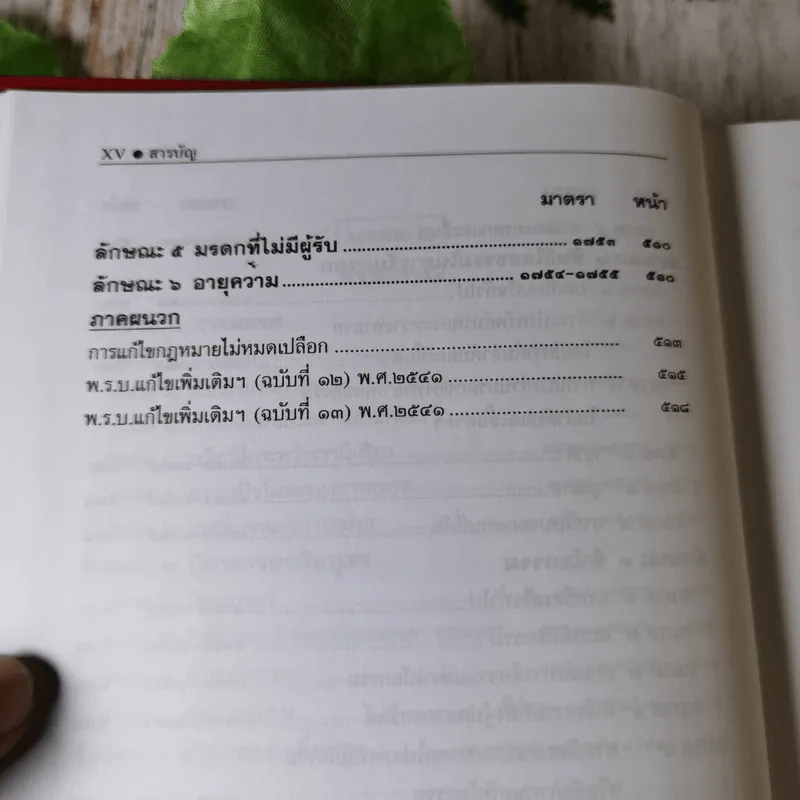 XV ● สารบัญ
มาตรา หน้า
ลักษณะ ๕ มรดกที่ไม่มีผู้รับ ........................................................ ๑๗๕๓ ๕๑๐
ลักษณะ ๖ อายุความ........................................................ ๑๗๕๔-๑๗๕๕ ๕๑๐
ภาคผนวก
การแก้ไขกฎหมายไม่หมดเปลือก ........................................................ ๕๑๓
พ.ร.บ.แก้ไขเพิ่มเติมฯ (ฉบับที่ ๑๒) พ.ศ.๒๕๔๑ ........................................ ๕๑๕
พ.ร.บ.แก้ไขเพิ่มเติมฯ (ฉบับที่ ๑๓) พ.ศ.๒๕๔๑ ........................................ ๕๑๘